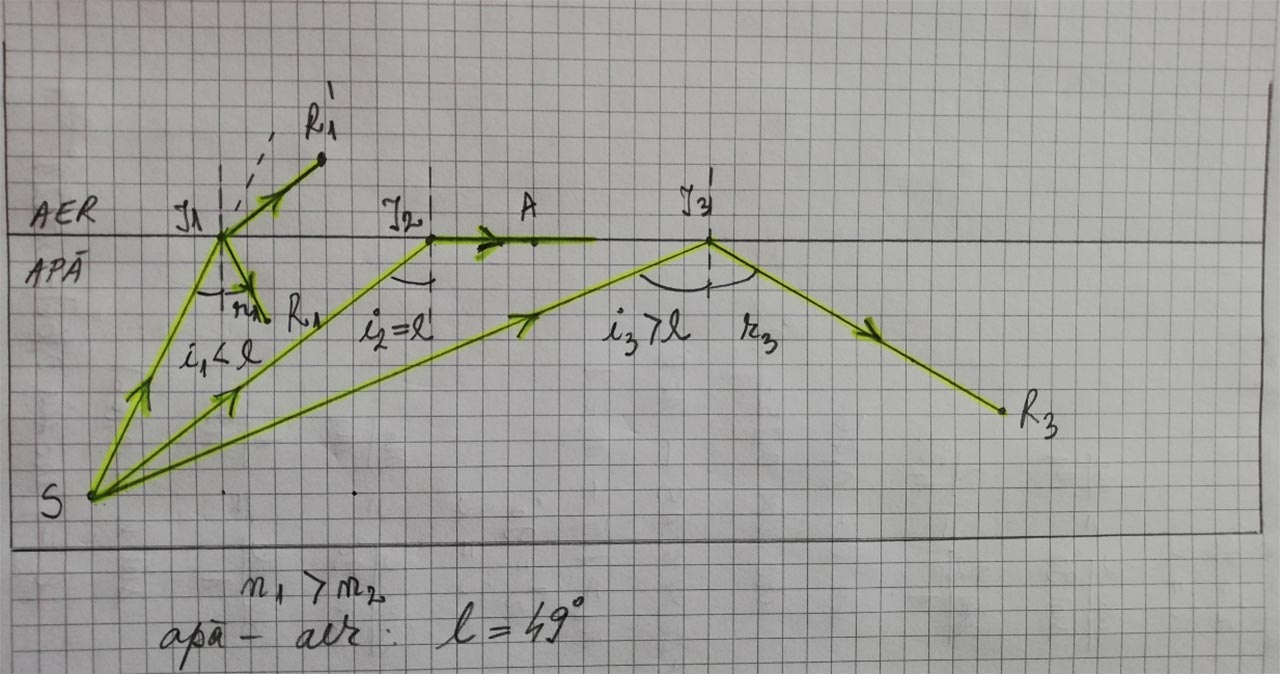 R₁'
AER I₁ I₂ A I₃
APĂ
r₁ R₁
i₁ < l i₂ = l i₃ > l r₃
R₃
S
n₁ > n₂
apă - aer: l = 49°